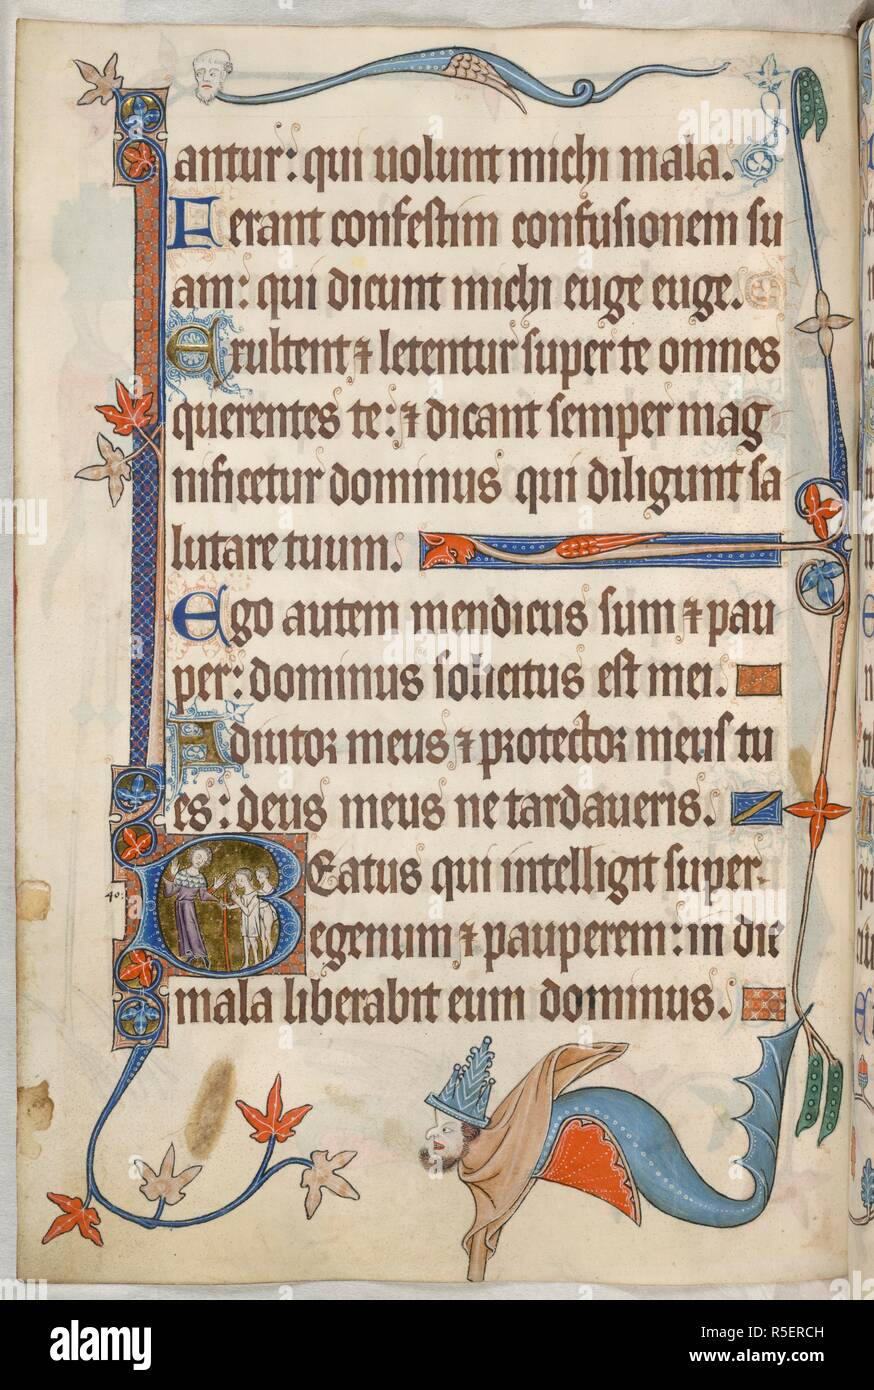 antur: qui uolunt michi mala.
Ferant confestim confusionem su
am: qui dicunt michi euge euge.
Exultent ⁊ letentur super te omnes
querentes te: ⁊ dicant semper mag
nificetur dominus qui diligunt sa
lutare tuum.
Ego autem mendicus sum ⁊ pau
per: dominus solicitus est mei.
Adiutor meus ⁊ protector meus tu
es: deus meus ne tardaueris.
BEatus qui intelligit super
egenum ⁊ pauperem: in die
mala liberabit eum dominus.
40:
a
alamy
alamy stock photo
Image ID: R5ERCH
www.alamy.com